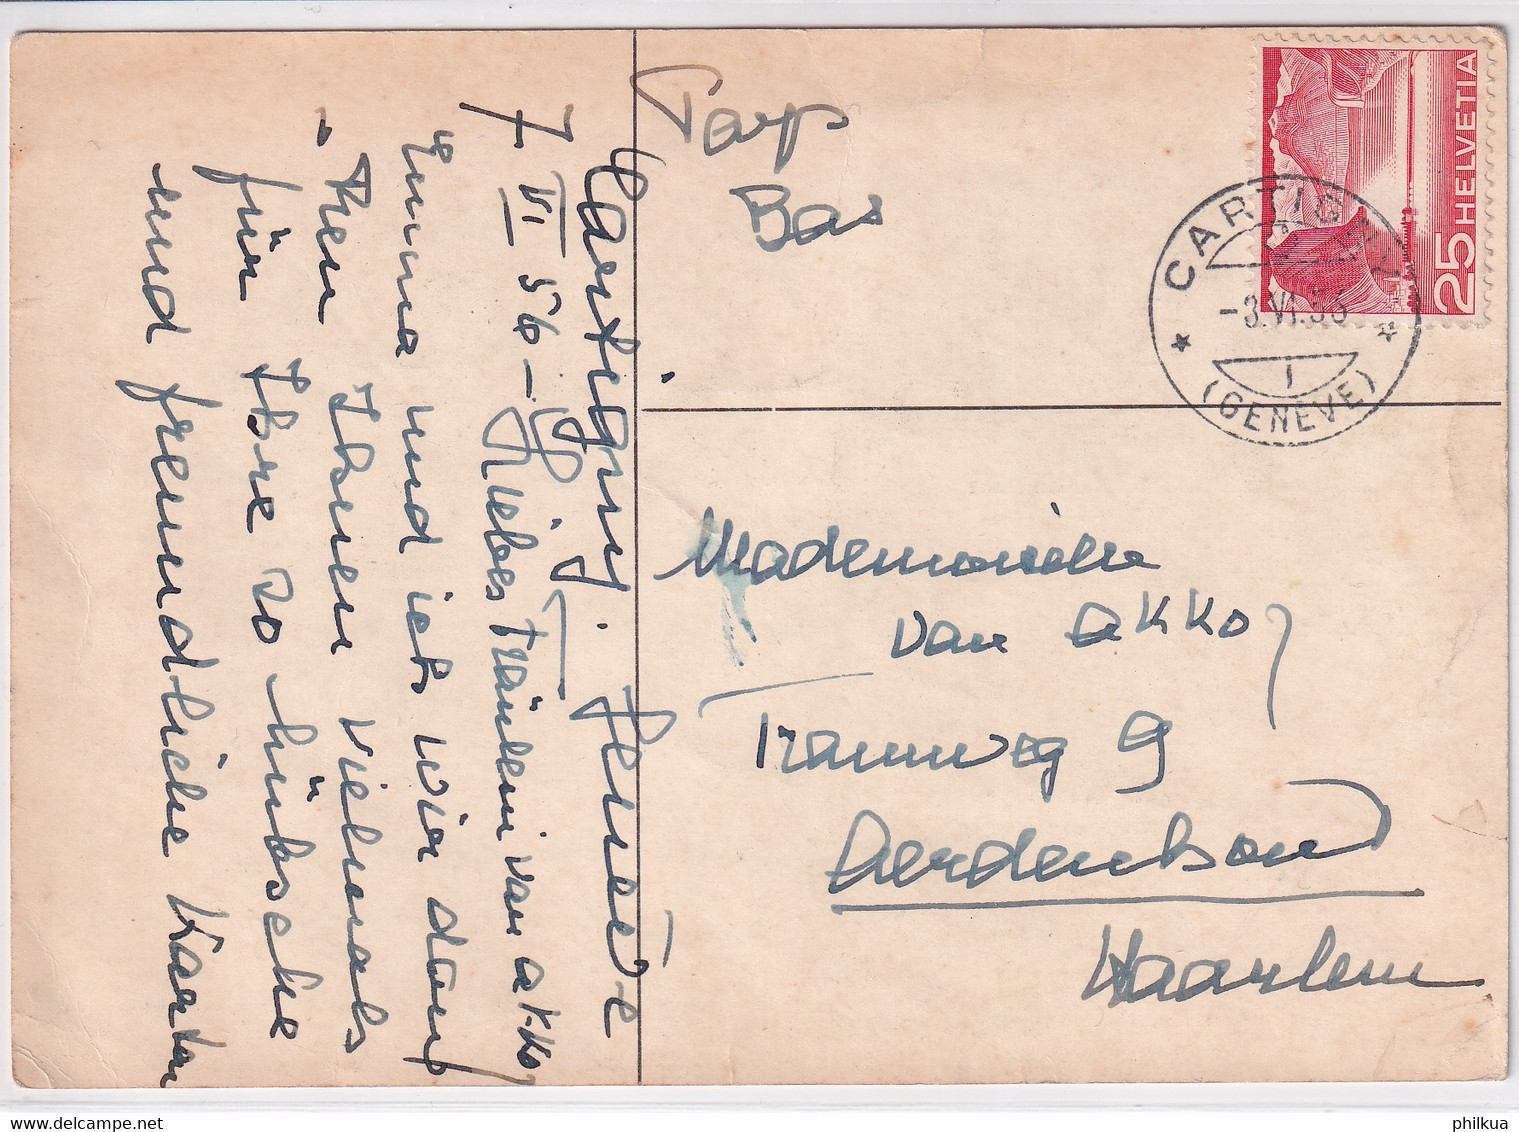 Cartigny. Genève
7 VI 56 –
Liebes Fräulein van akko
Emma und ich wir dank
- ken Ihnen vielmals
für Ihre so hübsche
und freundliche Karten
Pays
Bas
HELVETIA
25
CARTIGNY
-3.VI.56
1
(GENÈVE)
Mademoiselle
van akko
Tramweg 9
Aerdenhout
Haarlem
philkua